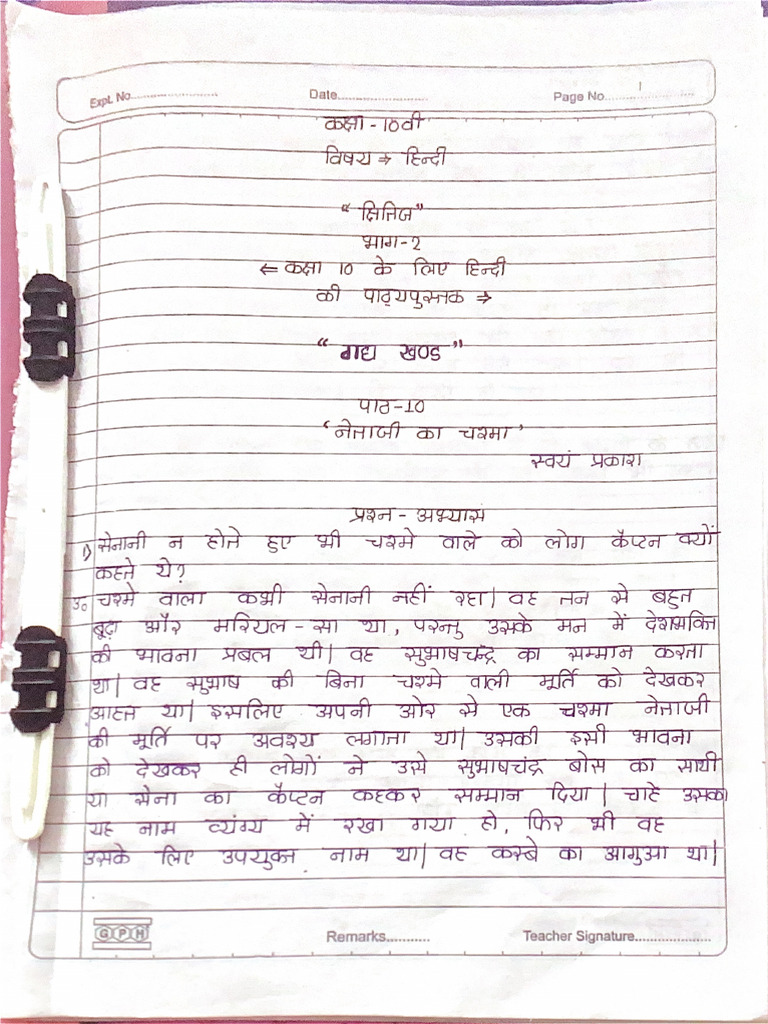 Expt. No.................... Date.................... Page No. 1
कक्षा - 10वी
विषय ⇒ हिन्दी
“ क्षितिज”
भाग-2
⇐ कक्षा 10 के लिए हिन्दी
की पाठ्यपुस्तक ⇒
“ गद्य खण्ड ”
पाठ-10
‘ नेताजी का चश्मा ’
स्वयं प्रकाश
प्रश्न - अभ्यास
1) सेनानी न होते हुए भी चश्मे वाले को लोग कैप्टन क्यों
कहते थे?
उ० चश्मे वाला कभी सेनानी नहीं रहा| वह तन से बहुत
बूढ़ा और मरियल - सा था, परन्तु उसके मन में देशभक्ति
की भावना प्रबल थी| वह सुभाषचन्द्र का सम्मान करता
था| वह सुभाष की बिना चश्मे वाली मूर्ति को देखकर
आहत था| इसलिए अपनी ओर से एक चश्मा नेताजी
की मूर्ति पर अवश्य लगाता था| उसकी इसी भावना
को देखकर ही लोगों ने उसे सुभाषचंद्र बोस का साथी
या सेना का कैप्टन कहकर सम्मान दिया| चाहे उसका
यह नाम व्यंग्य में रखा गया हो, फिर भी वह
उसके लिए उपयुक्त नाम था| वह कस्बे का आगुआ था|
GPH Remarks........... Teacher Signature....................